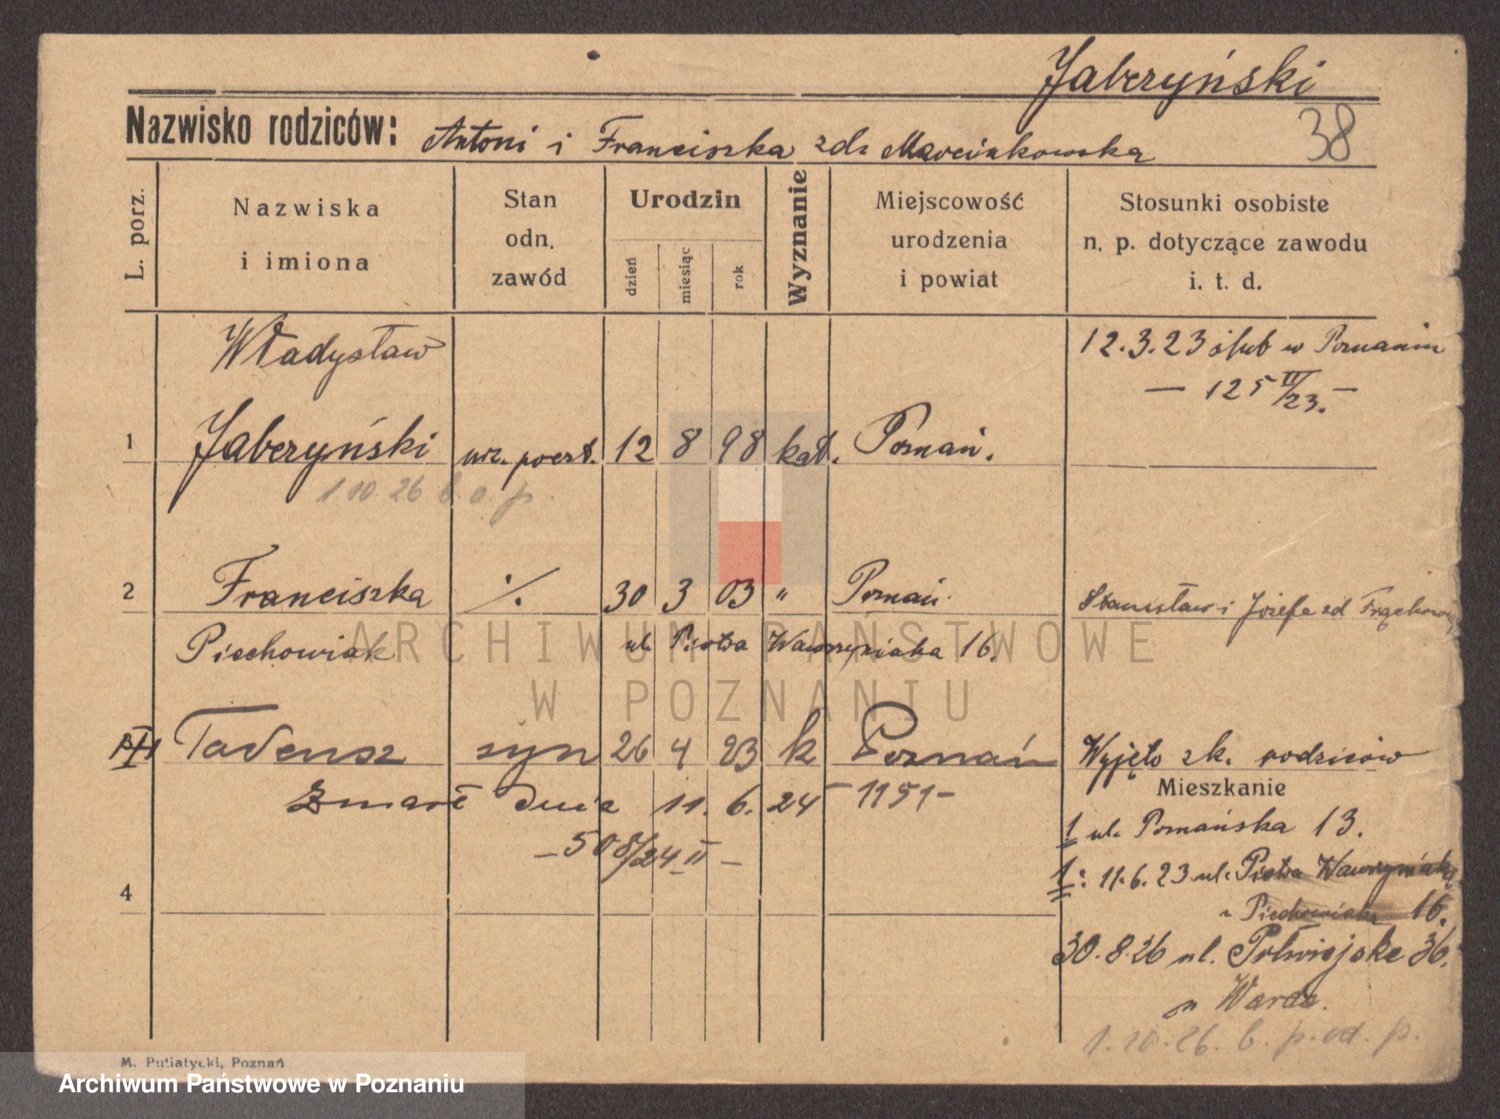 Jaberzyński
Nazwisko rodziców: Antoni i Franciszka zds Marcinkowska
38
L. porz.
Nazwiska
i imiona
Stan
odn.
zawód
Urodzin
dzień
miesiąc
rok
Wyznanie
Miejscowość
urodzenia
i powiat
Stosunki osobiste
n. p. dotyczące zawodu
i. t. d.
Władysław
12.3.23 ślub w Poznaniu
— 125 II/23. —
1 Jaberzyński urz. poczt. 12 8 98 kat. Poznań.
1 10 26 b. o. p.
2 Franciszka ·/. 30 3 03 " Poznań. Stanisław i Józefa zd
Piechowiak ul. Piotra Wawrzyniaka 16.
ARCHIWUM PAŃSTWOWE
W POZNANIU
Tadeusz syn 26 4 23 k Poznań Wyjęto z k. rodziców
Zmarł dnia 11. 6. 24 – 1151 –
– 508/24 II –
Mieszkanie
1 ul. Poznańska 13.
1: 11.6.23 ul. Piotra Wawrzyniaka
Piechowiak 16.
4
30.8.26 ul. Półwiejska 36.
Warda.
1.10.26. b. p. od. p.
M. Putiatycki, Poznań
Archiwum Państwowe w Poznaniu